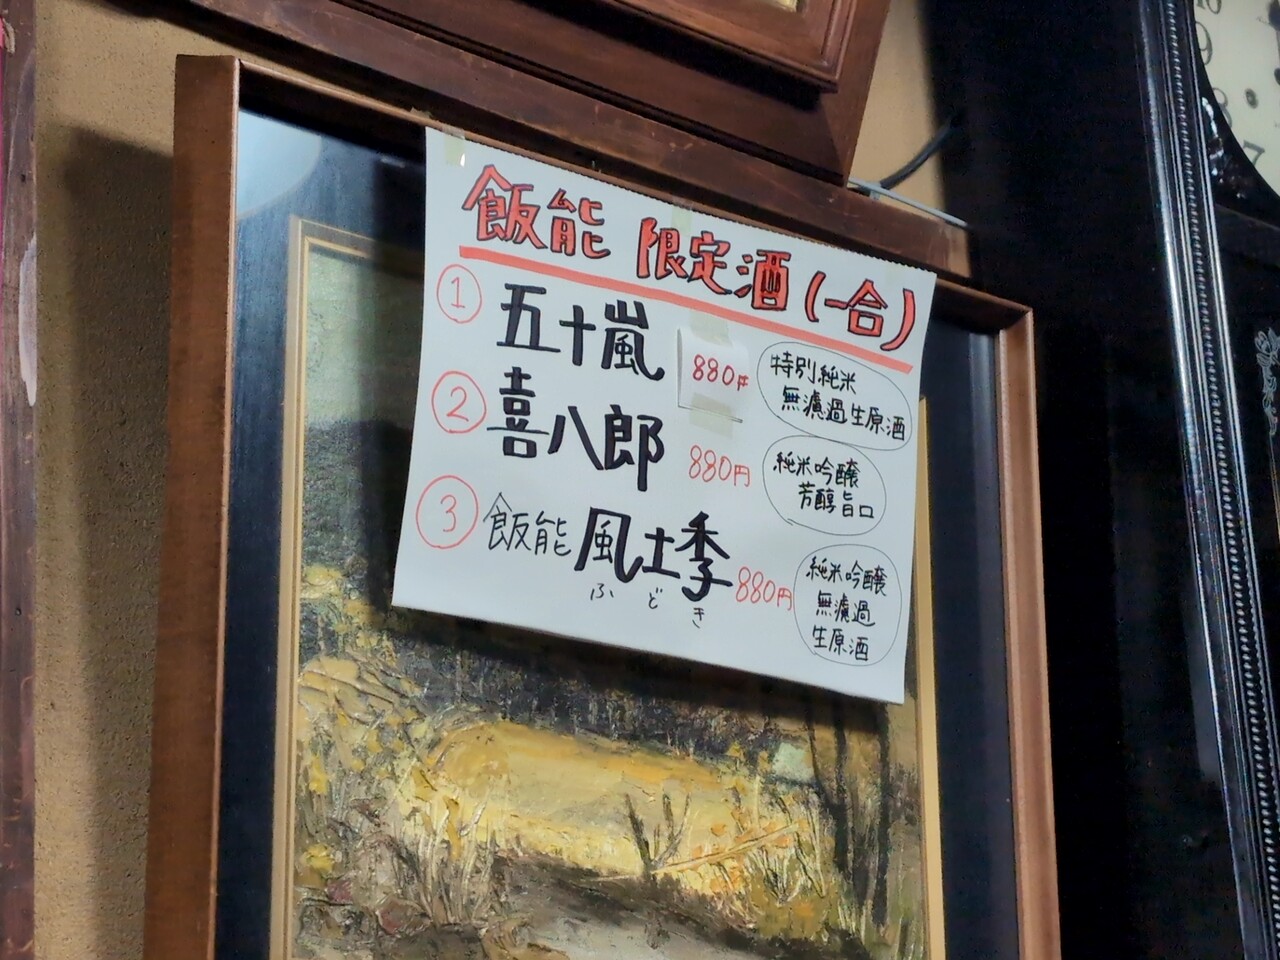 飯能 限定酒 (一合)
① 五十嵐 880円 特別純米
無濾過生原酒
② 喜八郎 880円 純米吟醸
芳醇旨口
③ 飯能 風土季 880円 純米吟醸
ふどき 無濾過
生原酒
10
9
8
7